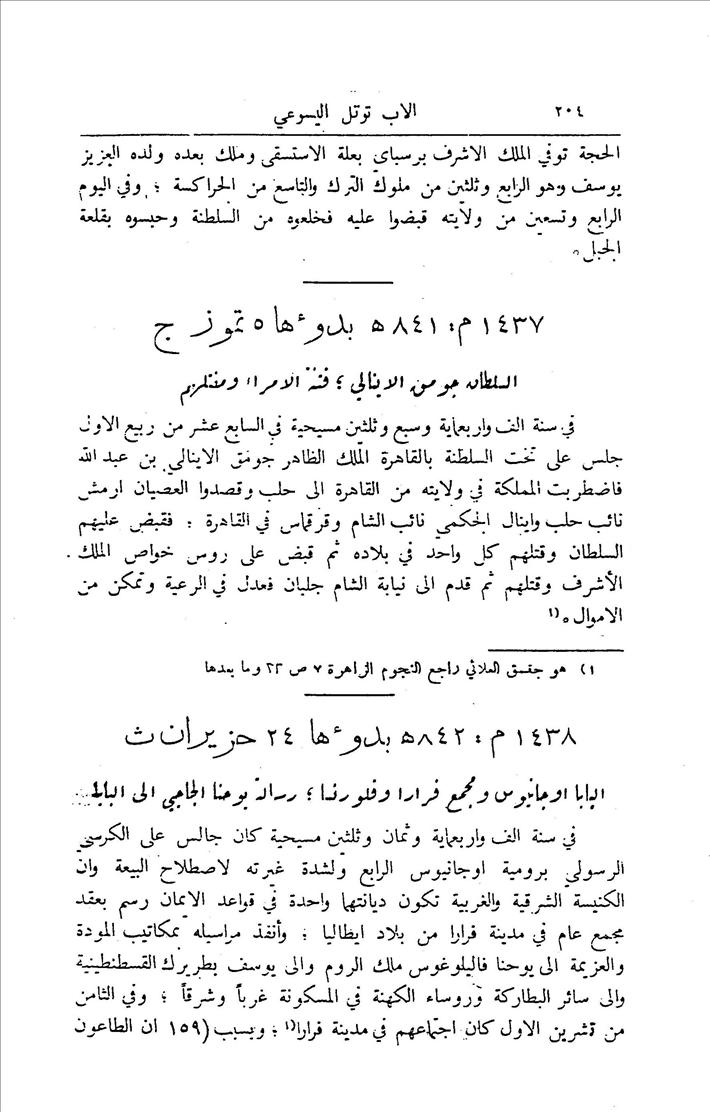 ٢٠٤ الاب توتل اليسوعي
الحجة توفي الملك الاشرف برسباى بعلة الاستسقى وملك بعده ولده العزيز
يوسف وهو الرابع وثلثين من ملوك الترك والتاسع من الجراكسة ؛ وفي اليوم
الرابع وتسعين من ولايته قبضوا عليه فخلعوه من السلطنة وحبسوه بقلعة
الجبل ٥
١٤٣٧ م : ٨٤١ ه بدوءها ٥ تموز ج
السلطان جومق الاينالي ؛ فتنة الامراء ومقتلهم
في سنة الف واربعماية وسبع وثلثين مسيحية في السابع عشر من ربيع الاول
جلس على تخت السلطنة بالقاهرة الملك الظاهر جومق الاينالي بن عبد الله
فاضطربت المملكة في ولايته من القاهرة الى حلب وقصدوا العصيان ارمش
نائب حلب واينال الجكمي نائب الشام وقرقماس في القاهرة : فقبض عليهم
السلطان وقتلهم كل واحد في بلاده ثم قبض على روس خواص الملك
الأشرف وقتلهم ثم قدم الى نيابة الشام جلبان فعدل في الرعية وتمكن من
الاموال ٥ ١)
١) هو جقمق العلائي راجع النجوم الزاهرة ٧ ص ٢٢ وما بعدها
١٤٣٨ م : ٨٤٢ ه بدوءها ٢٤ حزيران ث
البابا اوجانيوس ومجمع فرارا وفلورنسا ؛ رسالة يوحنا الجاجي الى البابا
في سنة الف واربعماية وثمان وثلثين مسيحية كان جالس على الكرسي
الرسولي برومية اوجانيوس الرابع ولشدة غيرته لاصطلاح البيعة وان
الكنيسة الشرقية والغربية تكون ديانتهما واحدة في قواعد الايمان رسم بعقد
مجمع عام في مدينة فرارا من بلاد ايطاليا ؛ وأنفذ مراسيله بمكاتيب المودة
والعزيمة الى يوحنا فاليلوغوس ملك الروم والى يوسف بطريرك القسطنطينية
والى سائر البطاركة وروساء الكهنة في المسكونة غرباً وشرقاً ؛ وفي الثامن
من تشرين الاول كان اجتماعهم في مدينة فرارا١) ؛ وبسبب (١٥٩ ان الطاعون